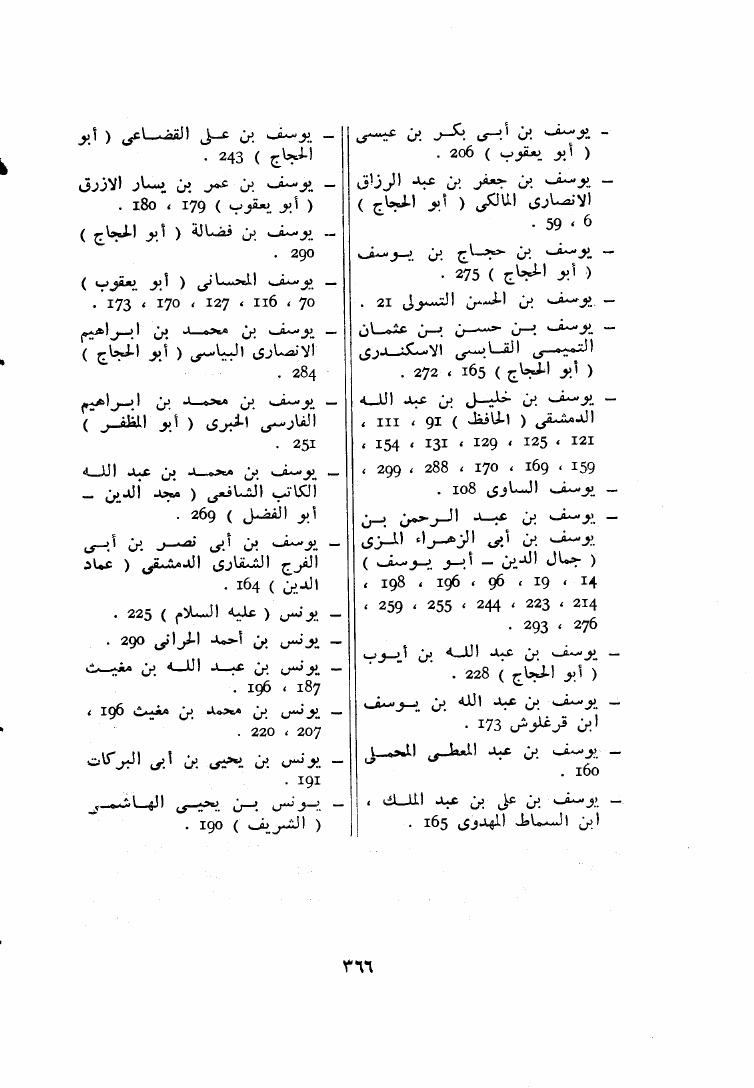 – يوسف بن أبى بكر بن عيسى
( أبو يعقوب ) 206 .
– يوسف بن جعفر بن عبد الرزاق
الانصارى المالكى ( أبو الحجاج )
6 ، 59 .
– يوسف بن حجاج بن يوسف
( أبو الحجاج ) 275 .
– يوسف بن الحسن التسولى 21 .
– يوسف بن حسن بن عثمان
التميمى القابسى الاسكندرى
( أبو الحجاج ) 165 ، 272 .
– يوسف بن خليل بن عبد الله
الدمشقى ( الحافظ ) 91 ، 111 ،
121 ، 125 ، 129 ، 131 ، 154 ،
159 ، 169 ، 170 ، 288 ، 299 ،
– يوسف الساوى 108 .
– يوسف بن عبد الرحمن بن
يوسف بن أبى الزهراء المزى
( جمال الدين – أبو يوسف )
14 ، 19 ، 96 ، 196 ، 198 ،
214 ، 223 ، 244 ، 255 ، 259 ،
276 ، 293 .
– يوسف بن عبد الله بن أيوب
( أبو الحجاج ) 228 .
– يوسف بن عبد الله بن يوسف
ابن قرغلوش 173 .
– يوسف بن عبد المعطى المحملى
160 .
– يوسف بن على بن عبد الملك ،
ابن السماط المهدوى 165 .
– يوسف بن على القضاعى ( أبو
الحجاج ) 243 .
– يوسف بن عمر بن يسار الازرق
( أبو يعقوب ) 179 ، 180 .
– يوسف بن فضالة ( أبو الحجاج )
290 .
– يوسف المحسانى ( أبو يعقوب )
70 ، 116 ، 127 ، 170 ، 173 .
– يوسف بن محمد بن ابراهيم
الانصارى البياسى ( أبو الحجاج )
284 .
– يوسف بن محمد بن ابراهيم
الفارسى الخبرى ( أبو المظفر )
251 .
– يوسف بن محمد بن عبد الله
الكاتب الشافعى ( مجد الدين –
أبو الفضل ) 269 .
– يوسف بن أبى نصر بن أبى
الفرج الشقارى الدمشقى ( عماد
الدين ) 164 .
– يونس ( عليه السلام ) 225 .
– يونس بن أحمد الحرانى 290 .
– يونس بن عبد الله بن مغيث
187 ، 196 .
– يونس بن محمد بن مغيث 196 ،
207 ، 220 .
– يونس بن يحيى بن أبى البركات
191 .
– يونس بن يحيى الهاشمى
( الشريف ) 190 .
٣٦٦